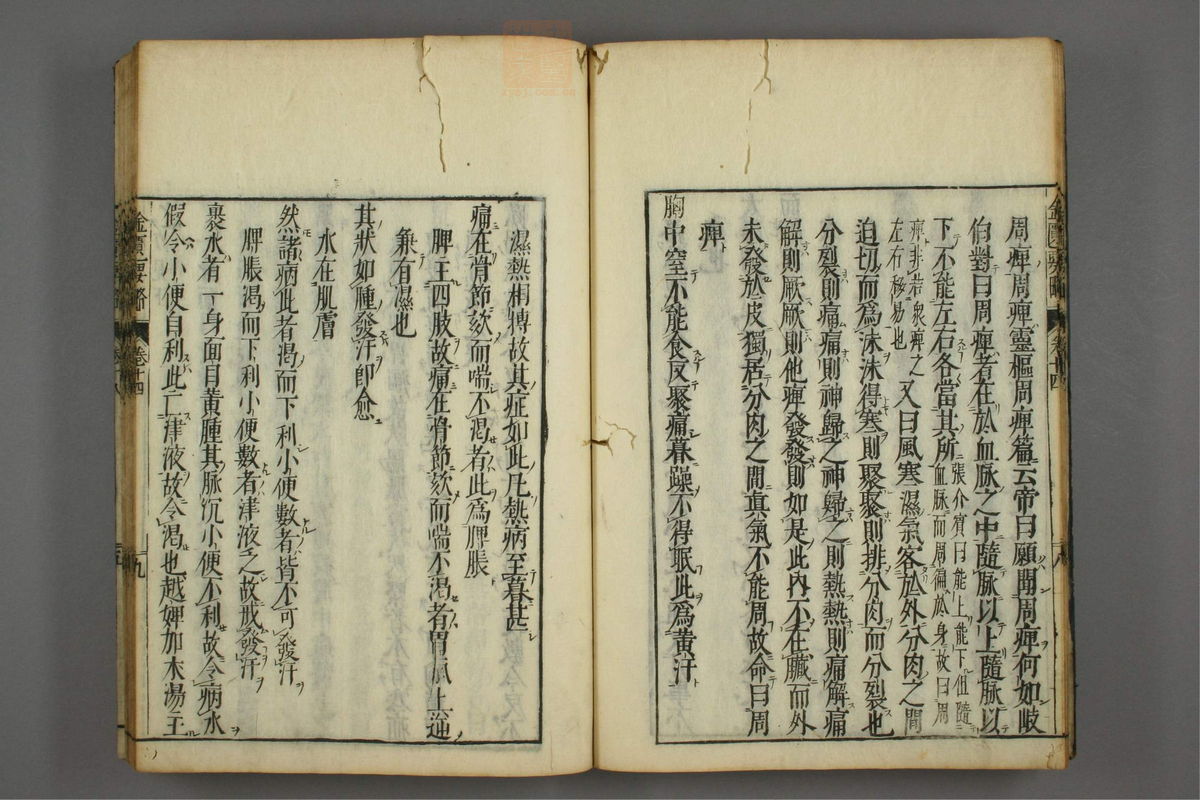 周痺周痺靈樞周痺篇云帝曰願聞周痺何如岐
伯對曰周痺者在於血脉之中隨脉以上隨脉以
下不能左右各當其所
張介賔曰能上能下但隨
血脉而周徧於身故曰周
痺非若衆痺之
左右移易也
又曰風寒濕氣客於外分肉之間
迫切而爲沫沫得寒則聚聚則排分肉而分裂也
分裂則痛痛則神歸之神歸之則熱熱則痛解痛
解則厥厥則他痺發發則如是此内不在臟而外
未發於皮獨居分肉之間眞氣不能周故命曰周
痺
胸中窒不能食反聚痛暮躁不得眠此爲黄汗
卷十四
八
濕熱相摶故其症如此凡熱病至暮甚
痛在骨節欬而喘不渴者此爲脾脹
脾主四肢故痛在骨節欬而喘不渴者胃氣上逆
兼有濕也
其狀如腫發汗即愈
水在肌膚
然諸病此者渴而下利小便數者皆不可發汗
脾脹渴而下利小便數者津液乏故戒發汗
裹水者一身面目黄腫其脉沉小便不利故令病水
假令小便自利此亡津液故令渴也越婢加朮湯主
金匱要略
卷十四
九